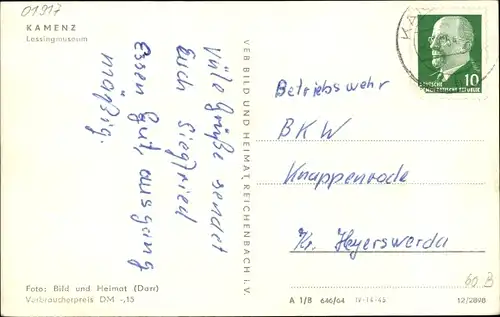 01917
KAMENZ
Lessingmuseum
Viele Grüße sendet
Euch Siegfried
Essen gut, ausgang
mäßig.
Foto: Bild und Heimat (Darr)
Verbraucherpreis DM -,15
VEB BILD UND HEIMAT, REICHENBACH i. V.
KA
10
DEUTSCHE
DEMOKRATISCHE REPUBLIK
Betriebswehr
BKW
Knappenrode
Kr. Heyerswerda
60 B
A 1/B 646/64 IV-14-45 12/2898